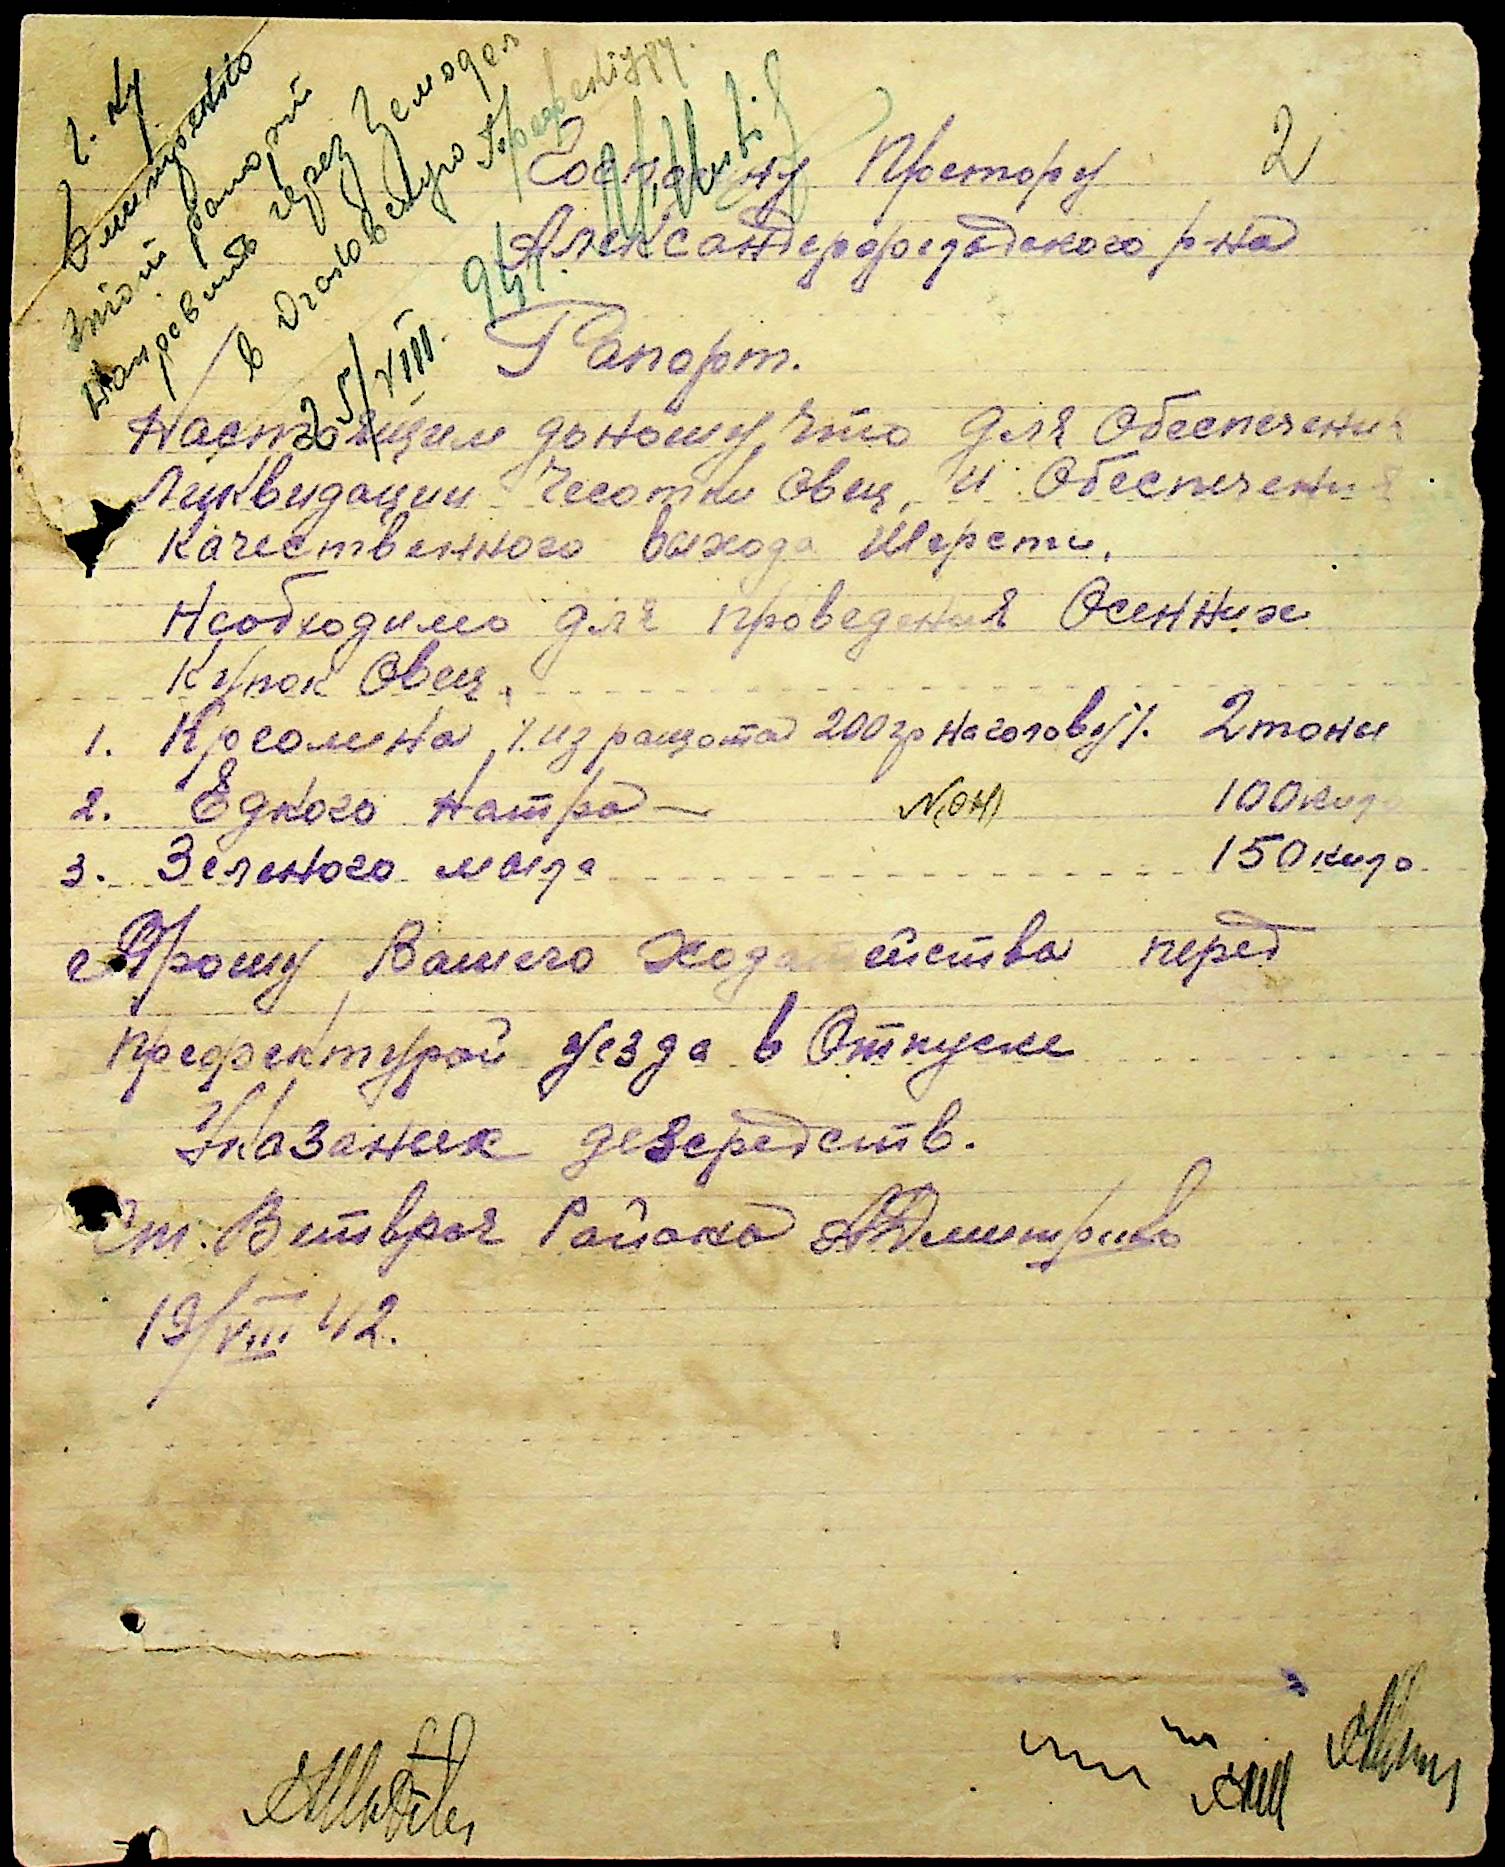 г. Ку
Дмитренко
Этот рапорт
направить через Земотдел
в Очаковскую Префектуру.
25/VIII. 942.
2
Господину Претору
Александерфельдского р-на
Рапорт.
Настоящим доношу, что для Обеспечения
Ликвидации Чесотки Овец, и Обеспечения
Качественного выхода Шерсти.
Необходимо для проведения Осенних
Купок Овец.
1. Креолина /. из ращота 200 гр на голову /. 2 тоны
2. Едкого натра — N(OH) 100 кило
3. Зеленого мыла 150 кило
Прошу Вашего Ходатейства перед
Префектурой уезда в Отпуске
Указаних дезсредств.
Ст. Ветврач Района АДмитриев
19/VIII 42.